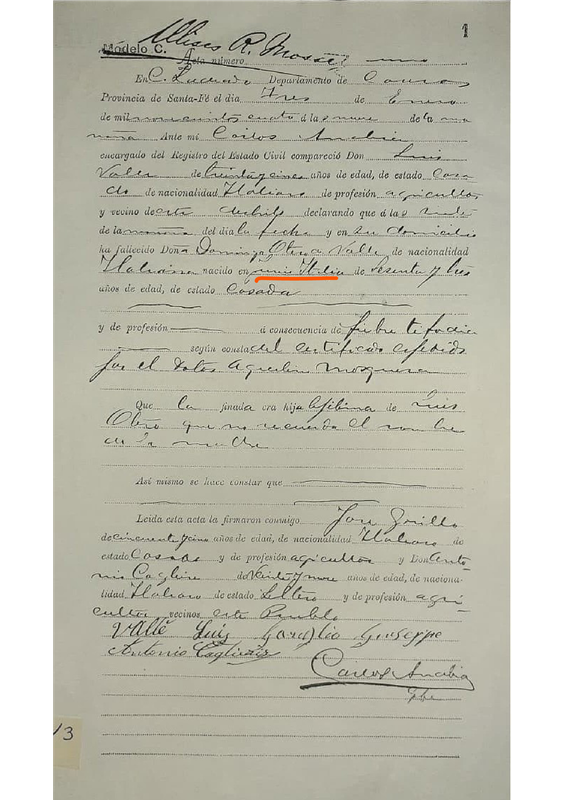 1
Ulises R. Mosset
Modelo C.
Acta número uno
En C. Departamento de
Provincia de Santa-Fé el día Tres de Enero
de mil novecientos cuatro á las nueve de la ma
ñana Ante mi Carlos Anabia
encargado del Registro del Estado Civil compareció Don Luis
Valle de treinta y cinco años de edad, de estado Casa
do de nacionalidad Italiano de profesión agricultor
y vecino de este distrito declarando que á las
de la mañana del día la fecha y en su domicilio
ha fallecido Dona Dominga Otro a Valle de nacionalidad
Italiana nacido en Italia de sesenta y tres
años de edad, de estado Casada
y de profesión á consecuencia de fiebre tifodia
según consta del certificado espedido
por el Dotor Aquilin Mosquera
Que la finada era hija lejitima de Luis
Otro que no recuerda el nombre
de la madre
Así mismo se hace constar que
Leida esta acta la firmaron conmigo Jose
de cincuenta y cinco años de edad, de nacionalidad Italiano de
estado Casado y de profesión agricultor y Don Anto-
nio Cagliero de Veinte y nueve años de edad, de naciona-
lidad Italiano de estado Soltero y de profesión agri
cultor vecinos este Pueblo
Valle Luis Giuseppe
Antonio Cagliero
Carlos Anabia
/3